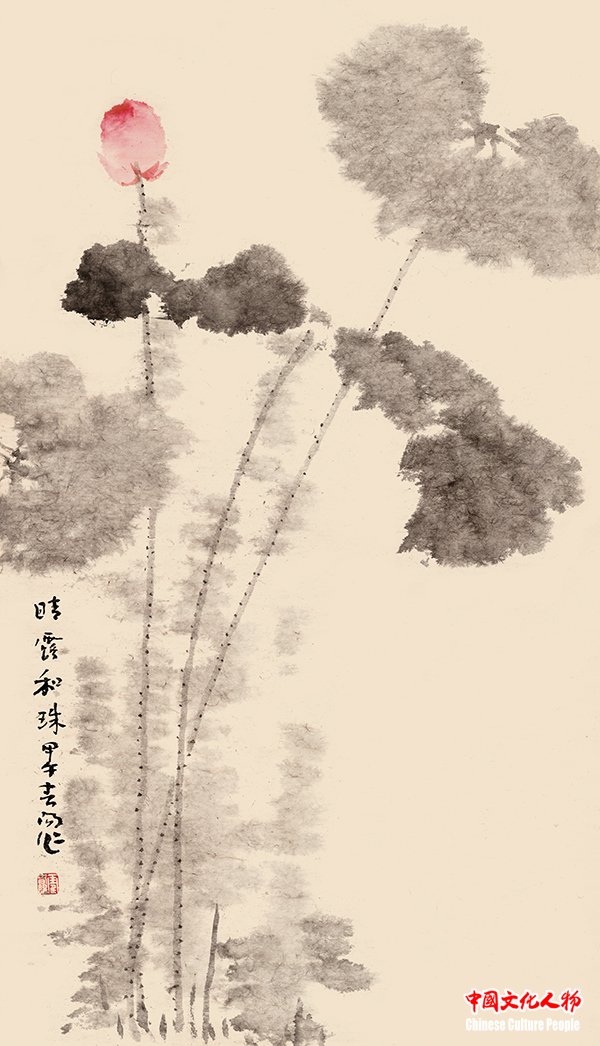 晴露和珠 甲午
中國文化人物
Chinese Culture People